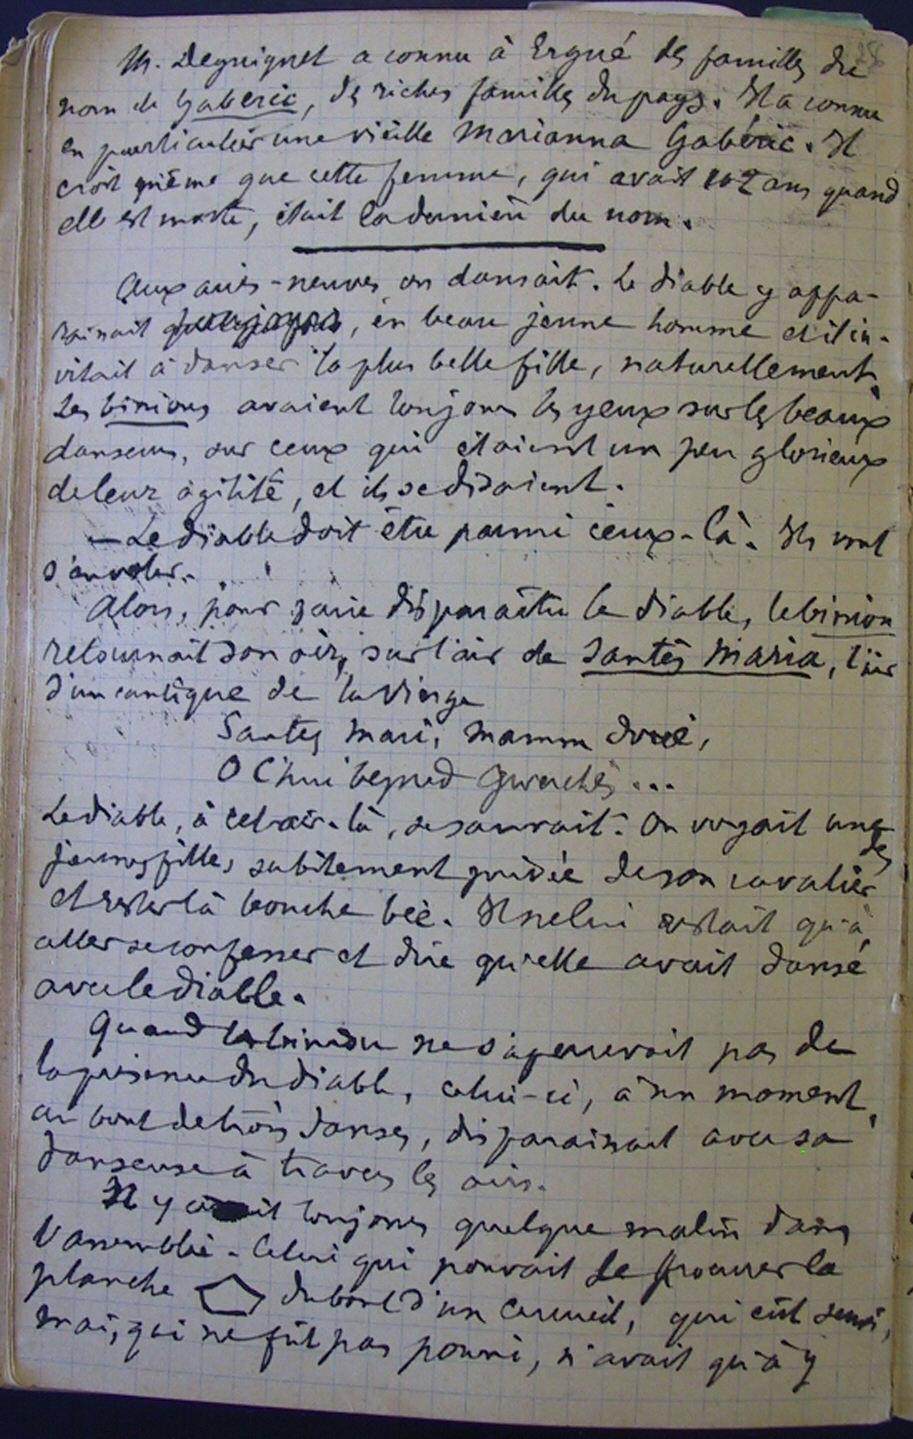 M. Deguignet a connu à Ergué des familles du
nom de Gaberic, de riches familles du pays. Il a connu
en particulier une vieille Marianna Gabéric. Il
croit même que cette femme, qui avait 102 ans quand
elle est morte, était la dernière du nom.
Aux aires-neuves on dansait. Le diable y appa-
raissait, en beau jeune homme et il in-
vitait à danser la plus belle fille, naturellement.
Les binious avaient toujours les yeux sur les beaux
danseurs, sur ceux qui étaient un peu glorieux
de leur agilité, et ils se disaient.
— Le diable doit être parmi ceux-là. Ils vont
s'envoler.
Alors, pour faire disparaître le diable, le biniou
retournait son air, sur l'air de Santes Maria, l'air
d'un cantique de la Vierge
Santes Mari, mamm Doué,
O C'hui beped Gwerches...
Le diable, à cet air-là, se sauvait. On voyait une des
jeunes filles, subitement privée de son cavalier
et rester là bouche bée. Il ne lui restait qu'à
aller se confesser et dire qu'elle avait dansé
avec le diable.
Quand le biniou ne s'apercevait pas de
la présence du diable, celui-ci, à un moment,
au bout de trois danses, disparaissait avec sa
danseuse à travers les airs.
Il y avait toujours quelque malin dans
l'assemblée. Celui qui pouvait se procurer la
planche du bout d'un cercueil, qui eût servi,
mais, qui ne fût pas pourri, n'avait qu'à y